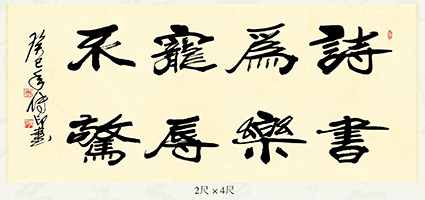 詩書
爲樂
寵辱
不驚
癸巳年
2尺×4尺